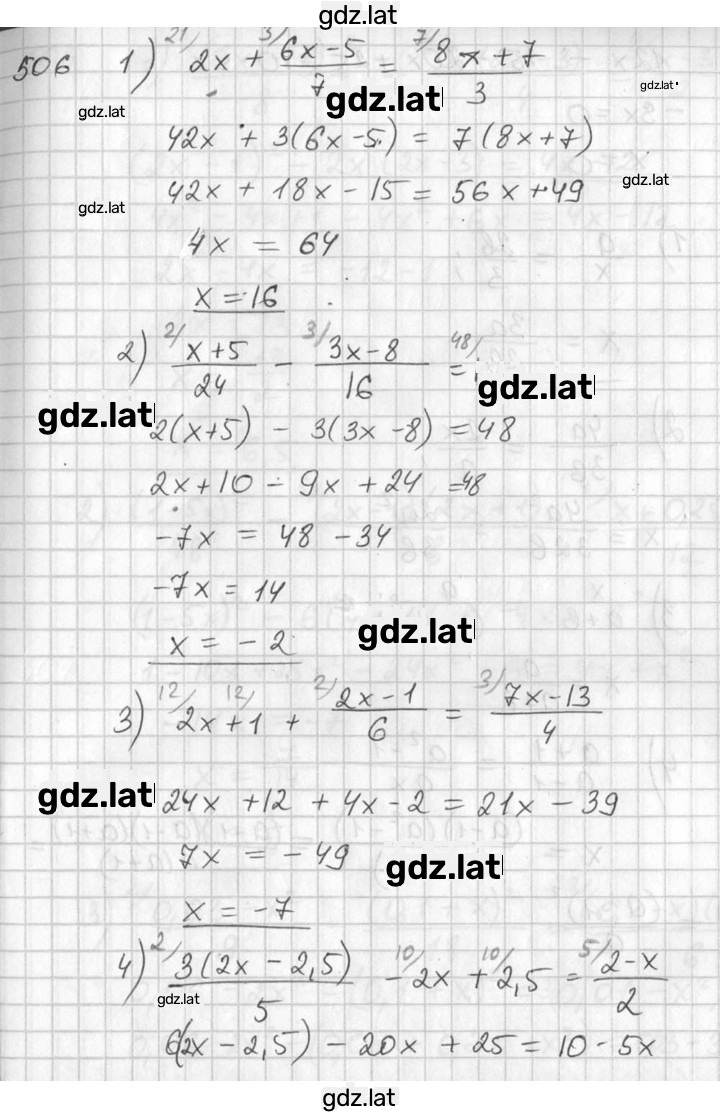 gdz.lat
506 1) ²¹/ 2x + ³/ (6x-5)/7 = ⁷/ (8x+7)/3
gdz.lat gdz.lat gdz.lat
42x + 3(6x-5) = 7(8x+7)
42x + 18x - 15 = 56x + 49
gdz.lat gdz.lat
4x = 64
x = 16
2) ²/ (x+5)/24 - ³/ (3x-8)/16 = ⁴⁸/
gdz.lat gdz.lat
2(x+5) - 3(3x-8) = 48
2x+10 - 9x + 24 = 48
-7x = 48 - 34
-7x = 14
x = -2
gdz.lat
3) ¹²/ 2x + ¹²/ 1 + ²/ (2x-1)/6 = ³/ (7x-13)/4
gdz.lat
24x + 12 + 4x - 2 = 21x - 39
7x = -49
gdz.lat
x = -7
4) ²/ 3(2x-2,5)/5 - ¹⁰/ 2x + ¹⁰/ 2,5 = ⁵/ (2-x)/2
gdz.lat
6(2x - 2,5) - 20x + 25 = 10 - 5x
gdz.lat